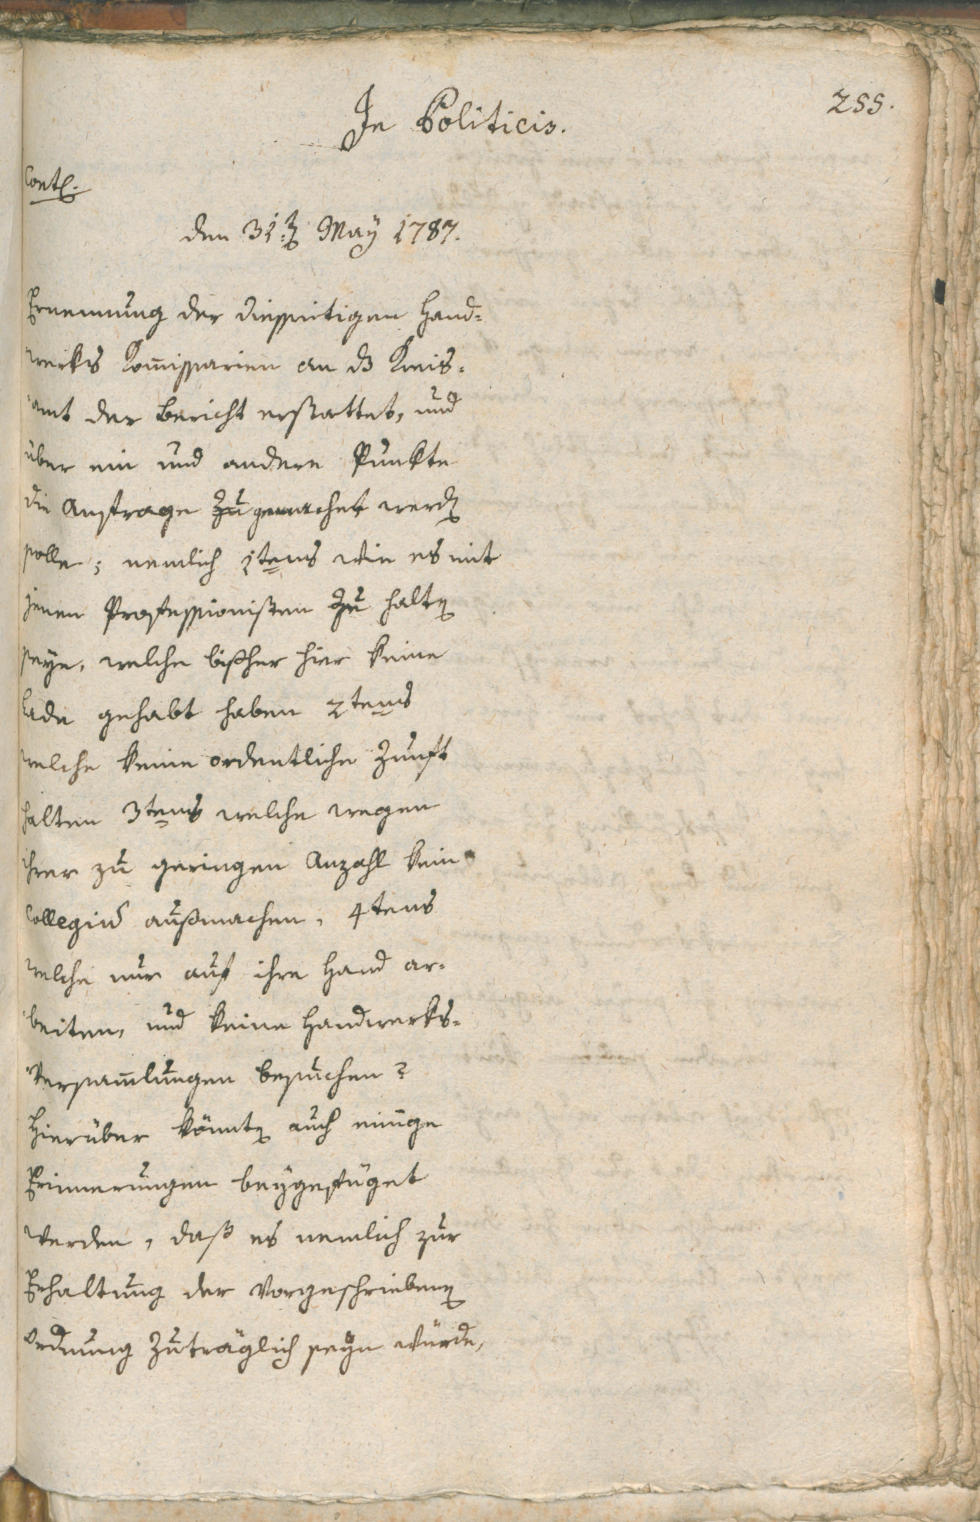 In Politicis.
255.
Cont.
den 31. May 1787.
Ernennung der diesseitigen Hand-
werks Kom̄issarien an das Kreis-
amt der Bericht erstattet, und
über ein und andere Punkte
die Anfrage gemachet werden
solle; nemlich 1tens wie es mit
jenen Professionisten zu halten
seye, welche bißher hier keine
Lade gehabt haben 2tens
welche keine ordentliche Zunft
halten 3tens welche wegen
ihrer zu geringen Anzahl kein
Collegium außmachen, 4tens
welche nur auf ihre Hand ar-
beiten, und keine Handwerks-
Versam̄lungen besuchen?
Hierüber könnten auch einige
Erinnerungen beygefüget
werden, daß es nemlich zur
Erhaltung der vorgeschriebenen
Ordnung zuträglich seyn würde,